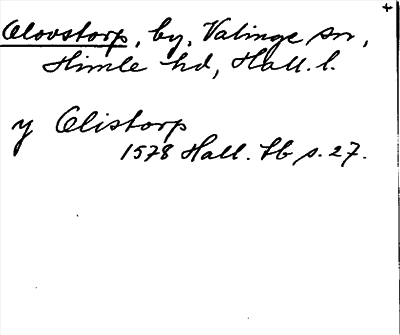 Olovstorp, by, Valinge sn,
Himle hd, Hall. l.
y Olistorp
1578 Hall. Hb s. 27.